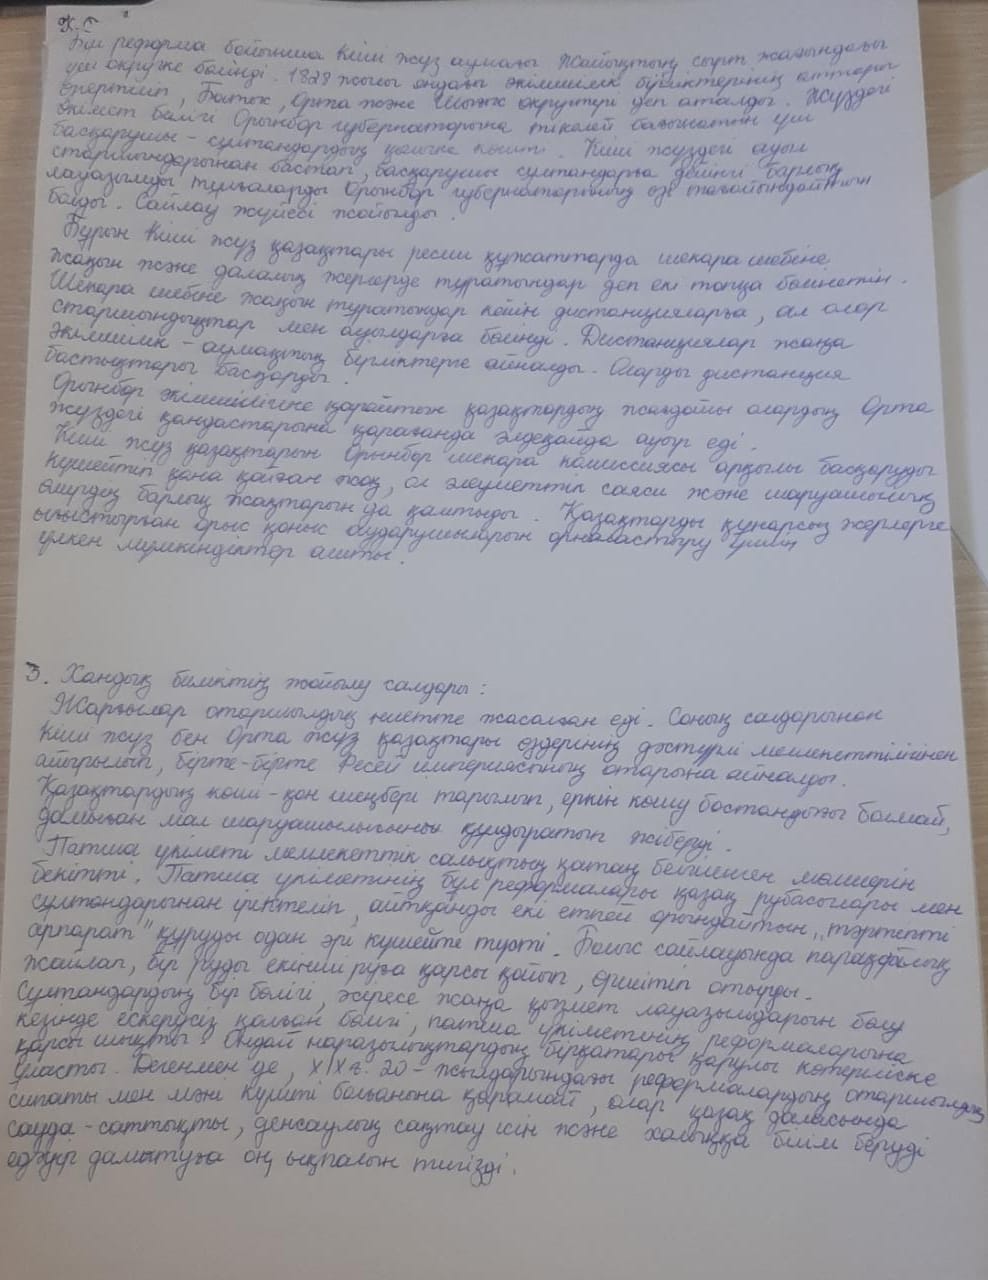 К.С
Бұл реформа бойынша Кіші жүз аумағы Жайықтың сырт жағындағы
үш округке бөлінді. 1828 жылы ондағы әкімшілік бірліктерінің аттары
өзгертіліп, Батыс, Орта және Шығыс округтері деп аталды. Жүздегі
өкімет билігі Орынбор губернаторына тікелей бағынатын үш
басқарушы-сұлтандардың қолына көшті. Кіші жүздегі ауыл
старшындарынан бастап, басқарушы сұлтандарға дейінгі барлық
лауазымды тұлғаларды Орынбор губернаторының өзі тағайындайтын
болды. Сайлау жүйесі жойылды.
Бұрын Кіші жүз қазақтары ресми құжаттарда шекара шебіне
жақын және далалық жерлерде тұратындар деп екі топқа бөлінетін.
Шекара шебіне жақын тұратындар кейін дистанцияларға, ал олар
старшындықтар мен ауылдарға бөлінді. Дистанциялар жаңа
әкімшілік-аумақтық бірліктерге айналды. Оларды дистанция
бастықтары басқарды.
Орынбор әкімшілігіне қарайтын қазақтардың жағдайы олардың Орта
жүздегі қандастарына қарағанда әлдеқайда ауыр еді.
Кіші жүз қазақтарын Орынбор шекара комиссиясы арқылы басқаруды
күшейтіп қана қойған жоқ, ол әлеуметтік саяси және шаруашылық
өмірдің барлық жақтарын да қамтыды. Қазақтарды құнарсыз жерлерге
ығыстырған орыс қоныс аударушыларын орналастыру үшін
үлкен мүмкіндіктер ашты.
3. Хандық биліктің жойылу салдары:
Жарғылар отаршылдық ниетте жасалған еді. Соның салдарынан
Кіші жүз бен Орта жүз қазақтары өздерінің дәстүрлі мемлекеттілігінен
айырылып, бірте-бірте Ресей империясының отарына айналды.
Қазақтардың көші-қон шеңбері тарылып, еркін көшу бостандығы болмай,
дамыған мал шаруашылығының құлдыратып жіберді.
Патша үкіметі мемлекеттік салықтың қатаң белгіленген мөлшерін
бекітті. Патша үкіметінің бұл реформалары қазақ рубасылары мен
сұлтандарынан іріктеліп, айтқанды екі етпей орындайтын „тәртіпті
аппарат" құруды одан әрі күшейте түсті. Болыс сайлауында парақорлық
жайлап, бір руды екінші руға қарсы қойып, өршітіп отырды.
Сұлтандардың бір бөлігі, әсіресе жаңа қызмет лауазымдарын бөлу
кезінде ескерусіз қалған бөлігі, патша үкіметінің реформаларына
қарсы шықты. Ондай наразылықтардың бірқатары қарулы көтеріліске
ұласты. Дегенмен де, XIX ғ. 20-жылдарындағы реформалардың отаршылдық
сипаты мен мәні күшті болғанына қарамай, олар қазақ даласында
сауда-саттықты, денсаулық сақтау ісін және халыққа білім беруді
едәуір дамытуға оң ықпалын тигізді.